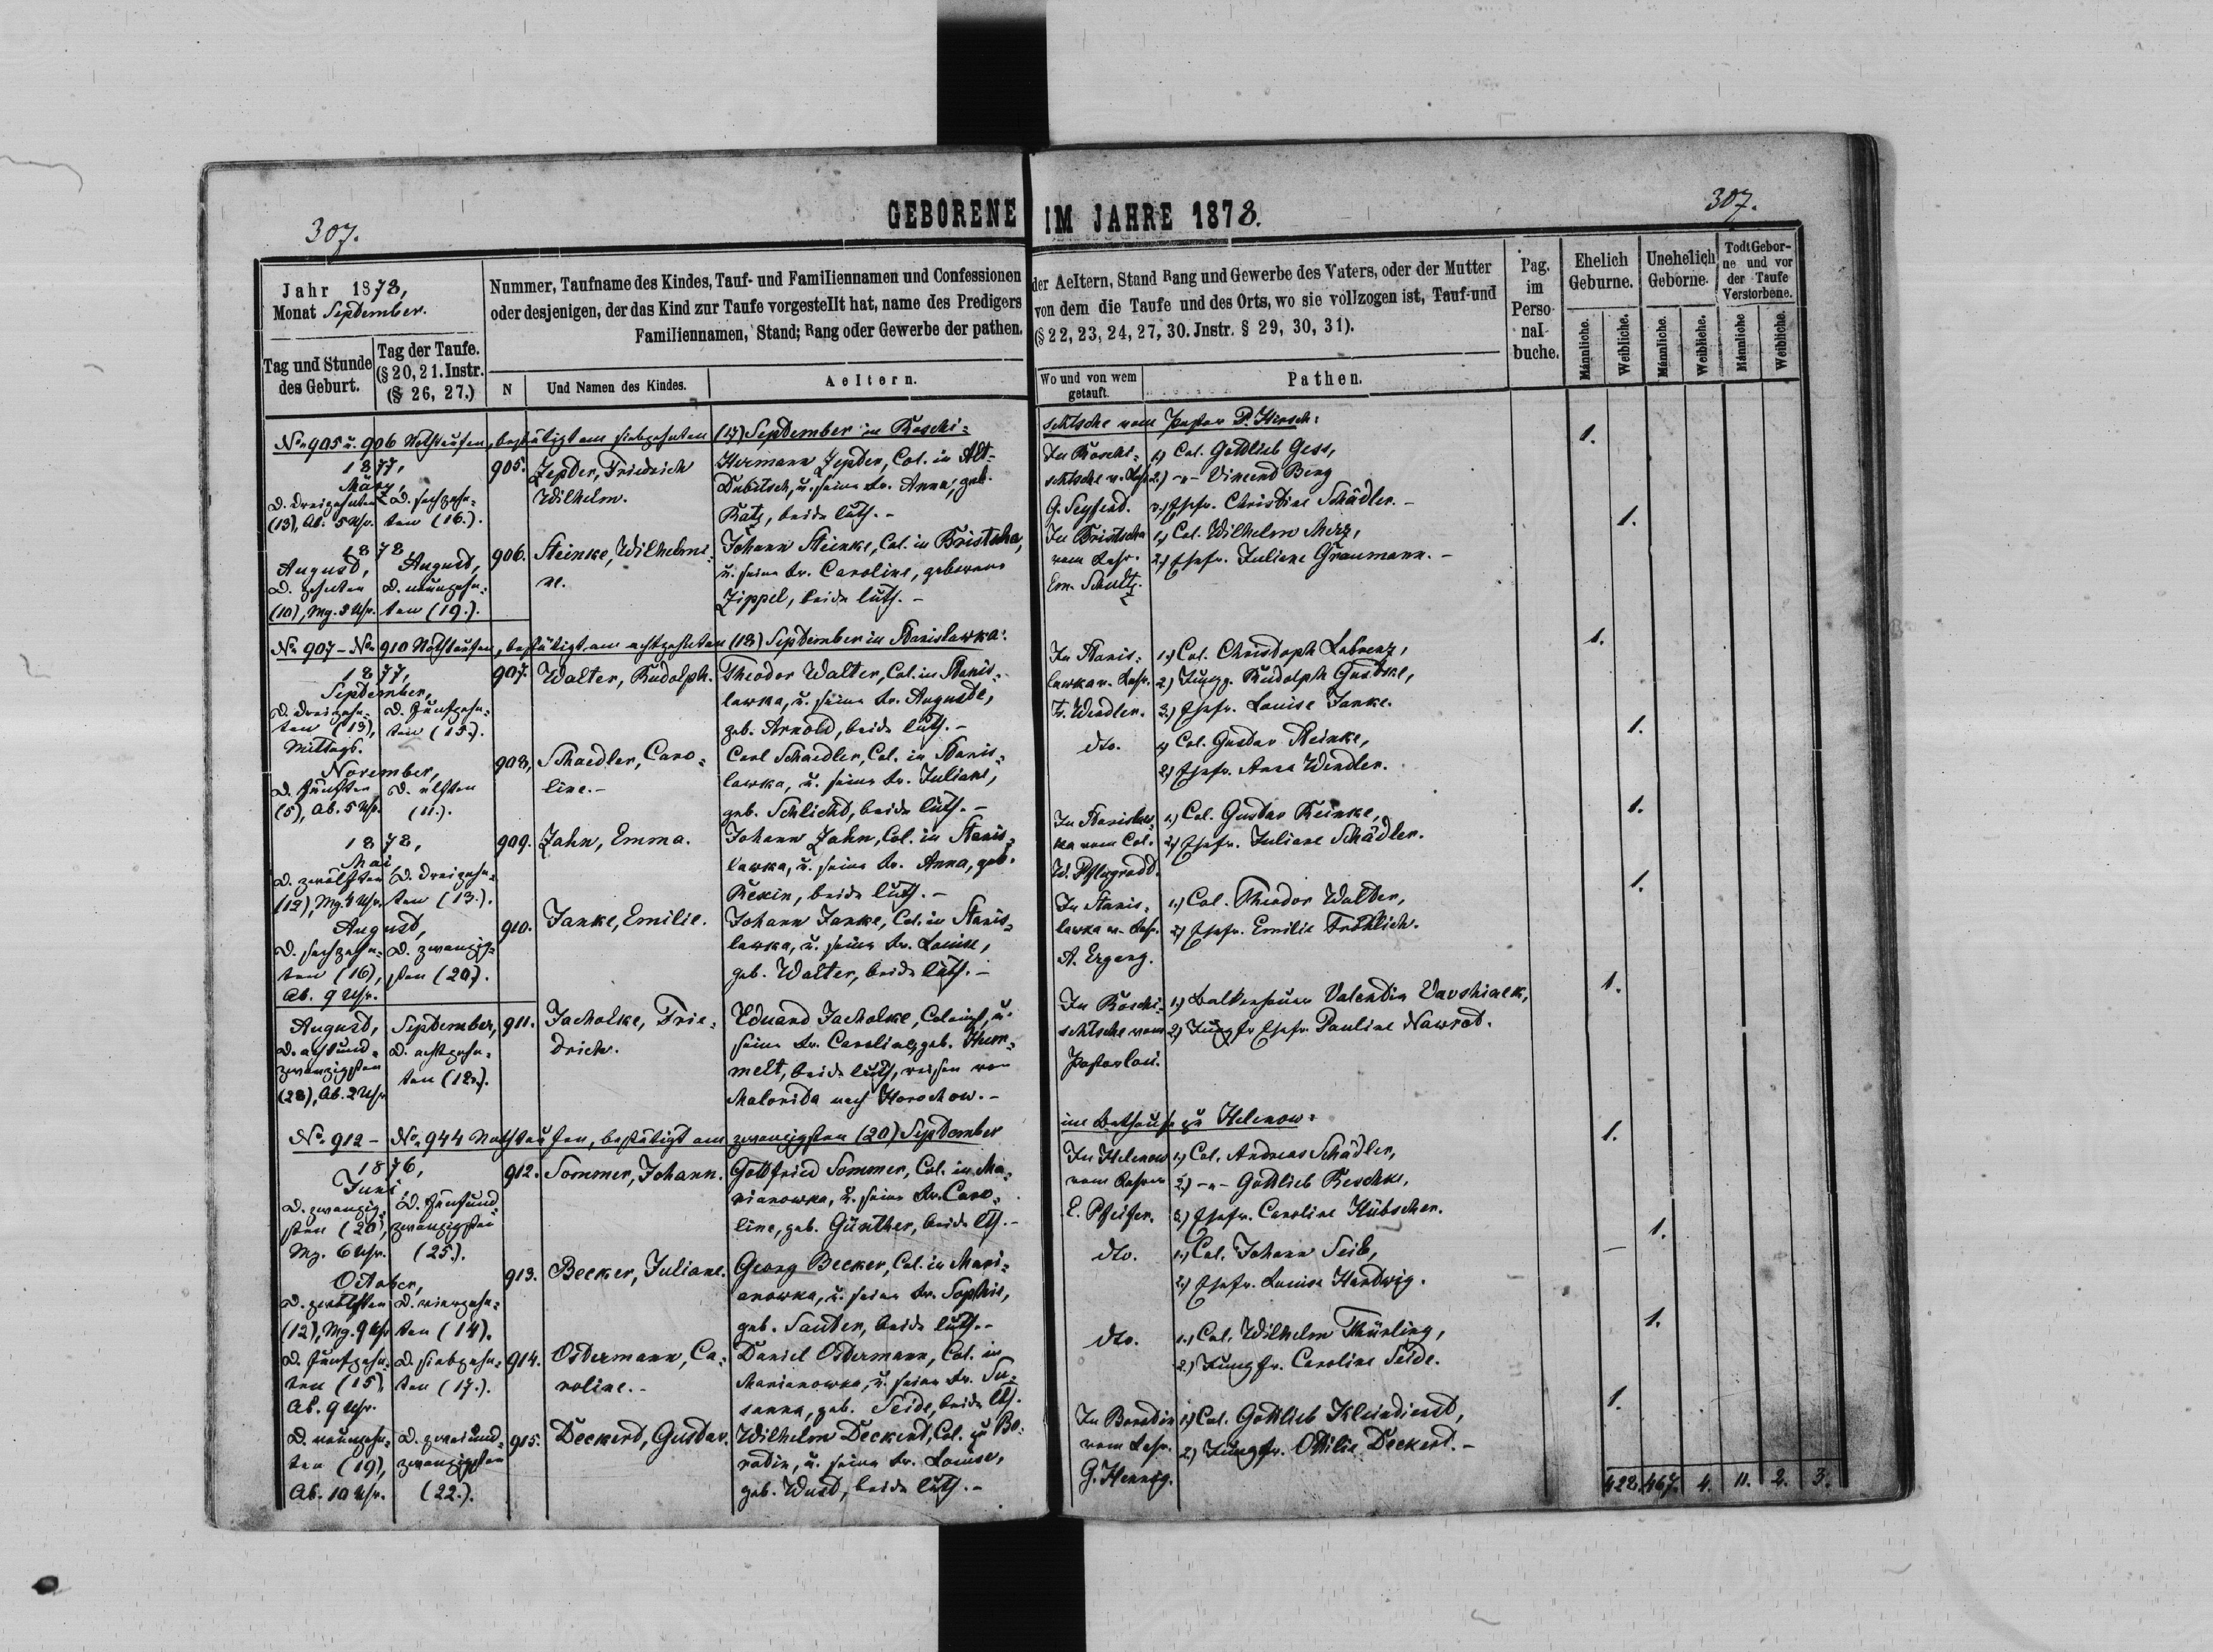 307.
GEBORENE IM JAHRE 1878.
307.
Jahr 1878,
Monat September.
Tag und Stunde des Geburt.
Tag der Taufe. (§ 20, 21. Instr. (§ 26, 27.)
Nummer, Taufname des Kindes, Tauf- und Familiennamen und Confessionen
oder desjenigen, der das Kind zur Taufe vorgestellt hat, name des Predigers
Familiennamen, Stand; Rang oder Gewerbe der pathen.
N
Und Namen des Kindes.
Aeltern.
der Aeltern, Stand Rang und Gewerbe des Vaters, oder der Mutter
von dem die Taufe und des Orts, wo sie vollzogen ist, Tauf-und
(§ 22, 23, 24, 27, 30. Jnstr. § 29, 30, 31).
Wo und von wem getauft.
Pathen.
Pag. im Perso- nal- buche.
Ehelich Geburne.
Unehelich Geborne.
Todt Gebor- ne und vor der Taufe Verstorbene.
Männliche.
Weibliche.
Männliche.
Weibliche.
Männliche
Weibliche.
No 905 u. 906 Nothtaufen, bestätigt am siebzehnten (17) September in Roschi-
schtsche vom Pastor P. Hirsch:
1877,
März,
D. dreizehnten
(13), Ab. 5 Uhr.
D. sechzehn-
ten (16.).
905.
Zepder, Friedrich
Wilhelm.
Hermann Zepder, Col. in Alt-
Dubitsch, u. seine Fr. Anna, geb.
Katz, beide luth. -
In Roschi-
schtsche v.
G. Seyfend.
1.) Col. Gottlieb Gess,
2.) -"- Vincend Berg
3.) Ehefr. Christine Schädler. -
1.
1878,
August,
D. zehnten
(10), Mg. 3 Uhr.
August,
D. neunzehn-
ten (19.).
906.
Steinke, Wilhelmi-
ne.
Johann Steinke, Col. in Bristscha,
u. seine Fr. Caroline, geborene
Zippel, beide luth. -
In Bristscha
vom Lehr.
Em. Schultz.
1.) Col. Wilhelm Merz,
2.) Ehefr. Juliane Graumann. -
1.
No 907 - No 910 Nothtaufen, bestätigt am achtzehnten (18) September in Stanislawka:
1877,
September,
D. dreizehn-
ten (13),
Mittags.
D. fünfzehn-
ten (15.).
907.
Walter, Rudolph.
Theodor Walter, Col. in Stanis-
lawka, u. seine Fr. Auguste,
geb. Arnold, beide luth. -
In Stanis-
lawka v. Lehr.
F. Wendler.
1.) Col. Christoph Labrenz,
2.) Jungg. Rudolph Gustke,
3.) Ehefr. Louise Janke.
1.
November,
D. fünften
(5), Ab. 5 Uhr.
D. elften
(11.).
908,
Schaedler, Caro-
line. -
Carl Schaedler, Col. in Stanis-
lawka, u. seine Fr. Juliane,
geb. Schlicht, beide luth. -
dto.
1.) Col. Gustav Reinke,
2.) Ehefr. Anna Wendler.
1.
1878,
Mai,
D. zwölften
(12), Mg. 4 Uhr.
D. dreizehn-
ten (13.).
909.
Zahn, Emma.
Johann Zahn, Col. in Stanis-
lawka, u. seine Fr. Anna, geb.
Rekin, beide luth. -
In Stanislaw-
ka vom Col.
W. Pflugradt.
1.) Col. Gustav Reinke,
2.) Ehefr. Juliane Schädler.
1.
August,
D. sechzehn-
ten (16),
Ab. 9 Uhr.
D. zwanzig-
sten (20).
910.
Janke, Emilie.
Johann Janke, Col. in Stanis-
lawka, u. seine Fr. Louise,
geb. Walter, beide luth. -
In Stanis-
lawka v. Lehr.
A. Ergang.
1.) Col. Theodor Walter,
2.) Ehefr. Emilie Fröhlich.
1.
August,
D. achtund-
zwanzigsten
(28), Ab. 2 Uhr
September,
D. achtzehn-
ten (18.).
911.
Jacholke, Frie-
drich.
Eduard Jacholke, Colonist, u.
seine Fr. Caroline, geb. Hum-
melt, beide luth, reisen von
Malorida nach Horochow. -
In Roschi-
schtsche vom
Pastor loci.
1.) Balkenhauer Valentin Vavshinek,
2.) Ehefr. Pauline Nawrot.
1.
No 912 - No 944 Nothtaufen, bestätigt am zwanzigsten (20) September
im Bethause zu Helenow:
1876,
Juni,
D. zwanzig-
sten (20),
Mg. 6 Uhr.
D. fünfund-
zwanzigsten
(25.).
912.
Sommer, Johann.
Gottfried Sommer, Col. in Ma-
rianowka, u. seine Fr. Caro-
line, geb. Günther, beide lth. -
In Helenow
vom Lehrer
E. Pfeifer.
1.) Col. Andreas Schädler,
2.) -"- Gottlieb Reschke,
3.) Ehefr. Caroline Hübscher.
1.
October,
D. zwölften
(12), Mg. 9 Uhr
D. vierzehn-
ten (14).
913.
Becker, Juliane.
Georg Becker, Col. in Mari-
anowka, u. seine Fr. Sophie,
geb. Sauter, beide luth. -
dto.
1.) Col. Johann Seib,
2.) Ehefr. Louise Hardwig.
1.
D. fünfzehn-
ten (15),
Ab. 9 Uhr.
D. siebzehn-
ten (17.).
914.
Ostermann, Ca-
roline. -
Daniel Ostermann, Col. in
Marianowka, u. seine Fr. Su-
sanna, geb. Seide, beide lth.
dto.
1.) Col. Wilhelm Thürling,
2.) Jungfr. Caroline Seide.
1.
D. neunzehn-
ten (19),
Ab. 10 Uhr.
D. zweiund-
zwanzigsten
(22.).
915.
Deckert, Gustav.
Wilhelm Deckert, Col. zu Bo-
radin, u. seine Fr. Louise,
geb. Wust, beide luth. -
In Boradin
vom Lehr.
G. Hennig.
1.) Col. Gottlieb Kleindienst,
2.) Jungfr. Ottilie Deckert. -
1.
428. 467. 4. 11. 2. 3.